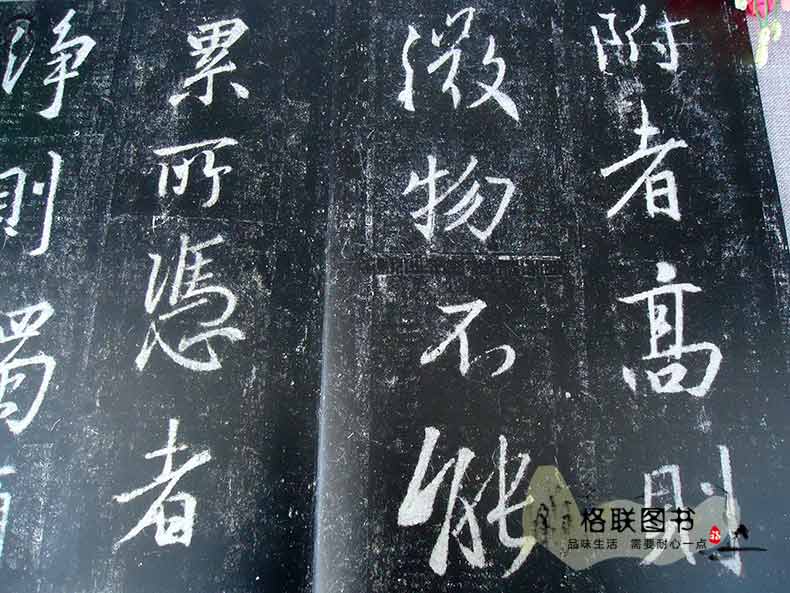 附者高則
微物不能
累所憑者
浄則濁
格联图书
品味生活 需要耐心一点